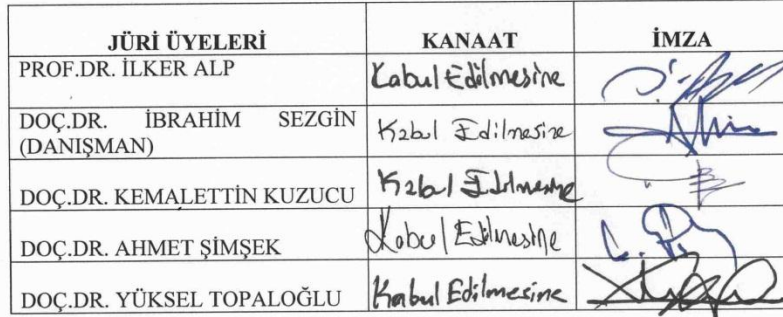 JÜRİ ÜYELERİ KANAAT İMZA
PROF.DR. İLKER ALP Kabul Edilmesine
DOÇ.DR. İBRAHİM SEZGİN Kabul Edilmesine
(DANIŞMAN)
DOÇ.DR. KEMALETTİN KUZUCU Kabul Edilmesine
DOÇ.DR. AHMET ŞİMŞEK Kabul Edilmesine
DOÇ.DR. YÜKSEL TOPALOĞLU Kabul Edilmesine